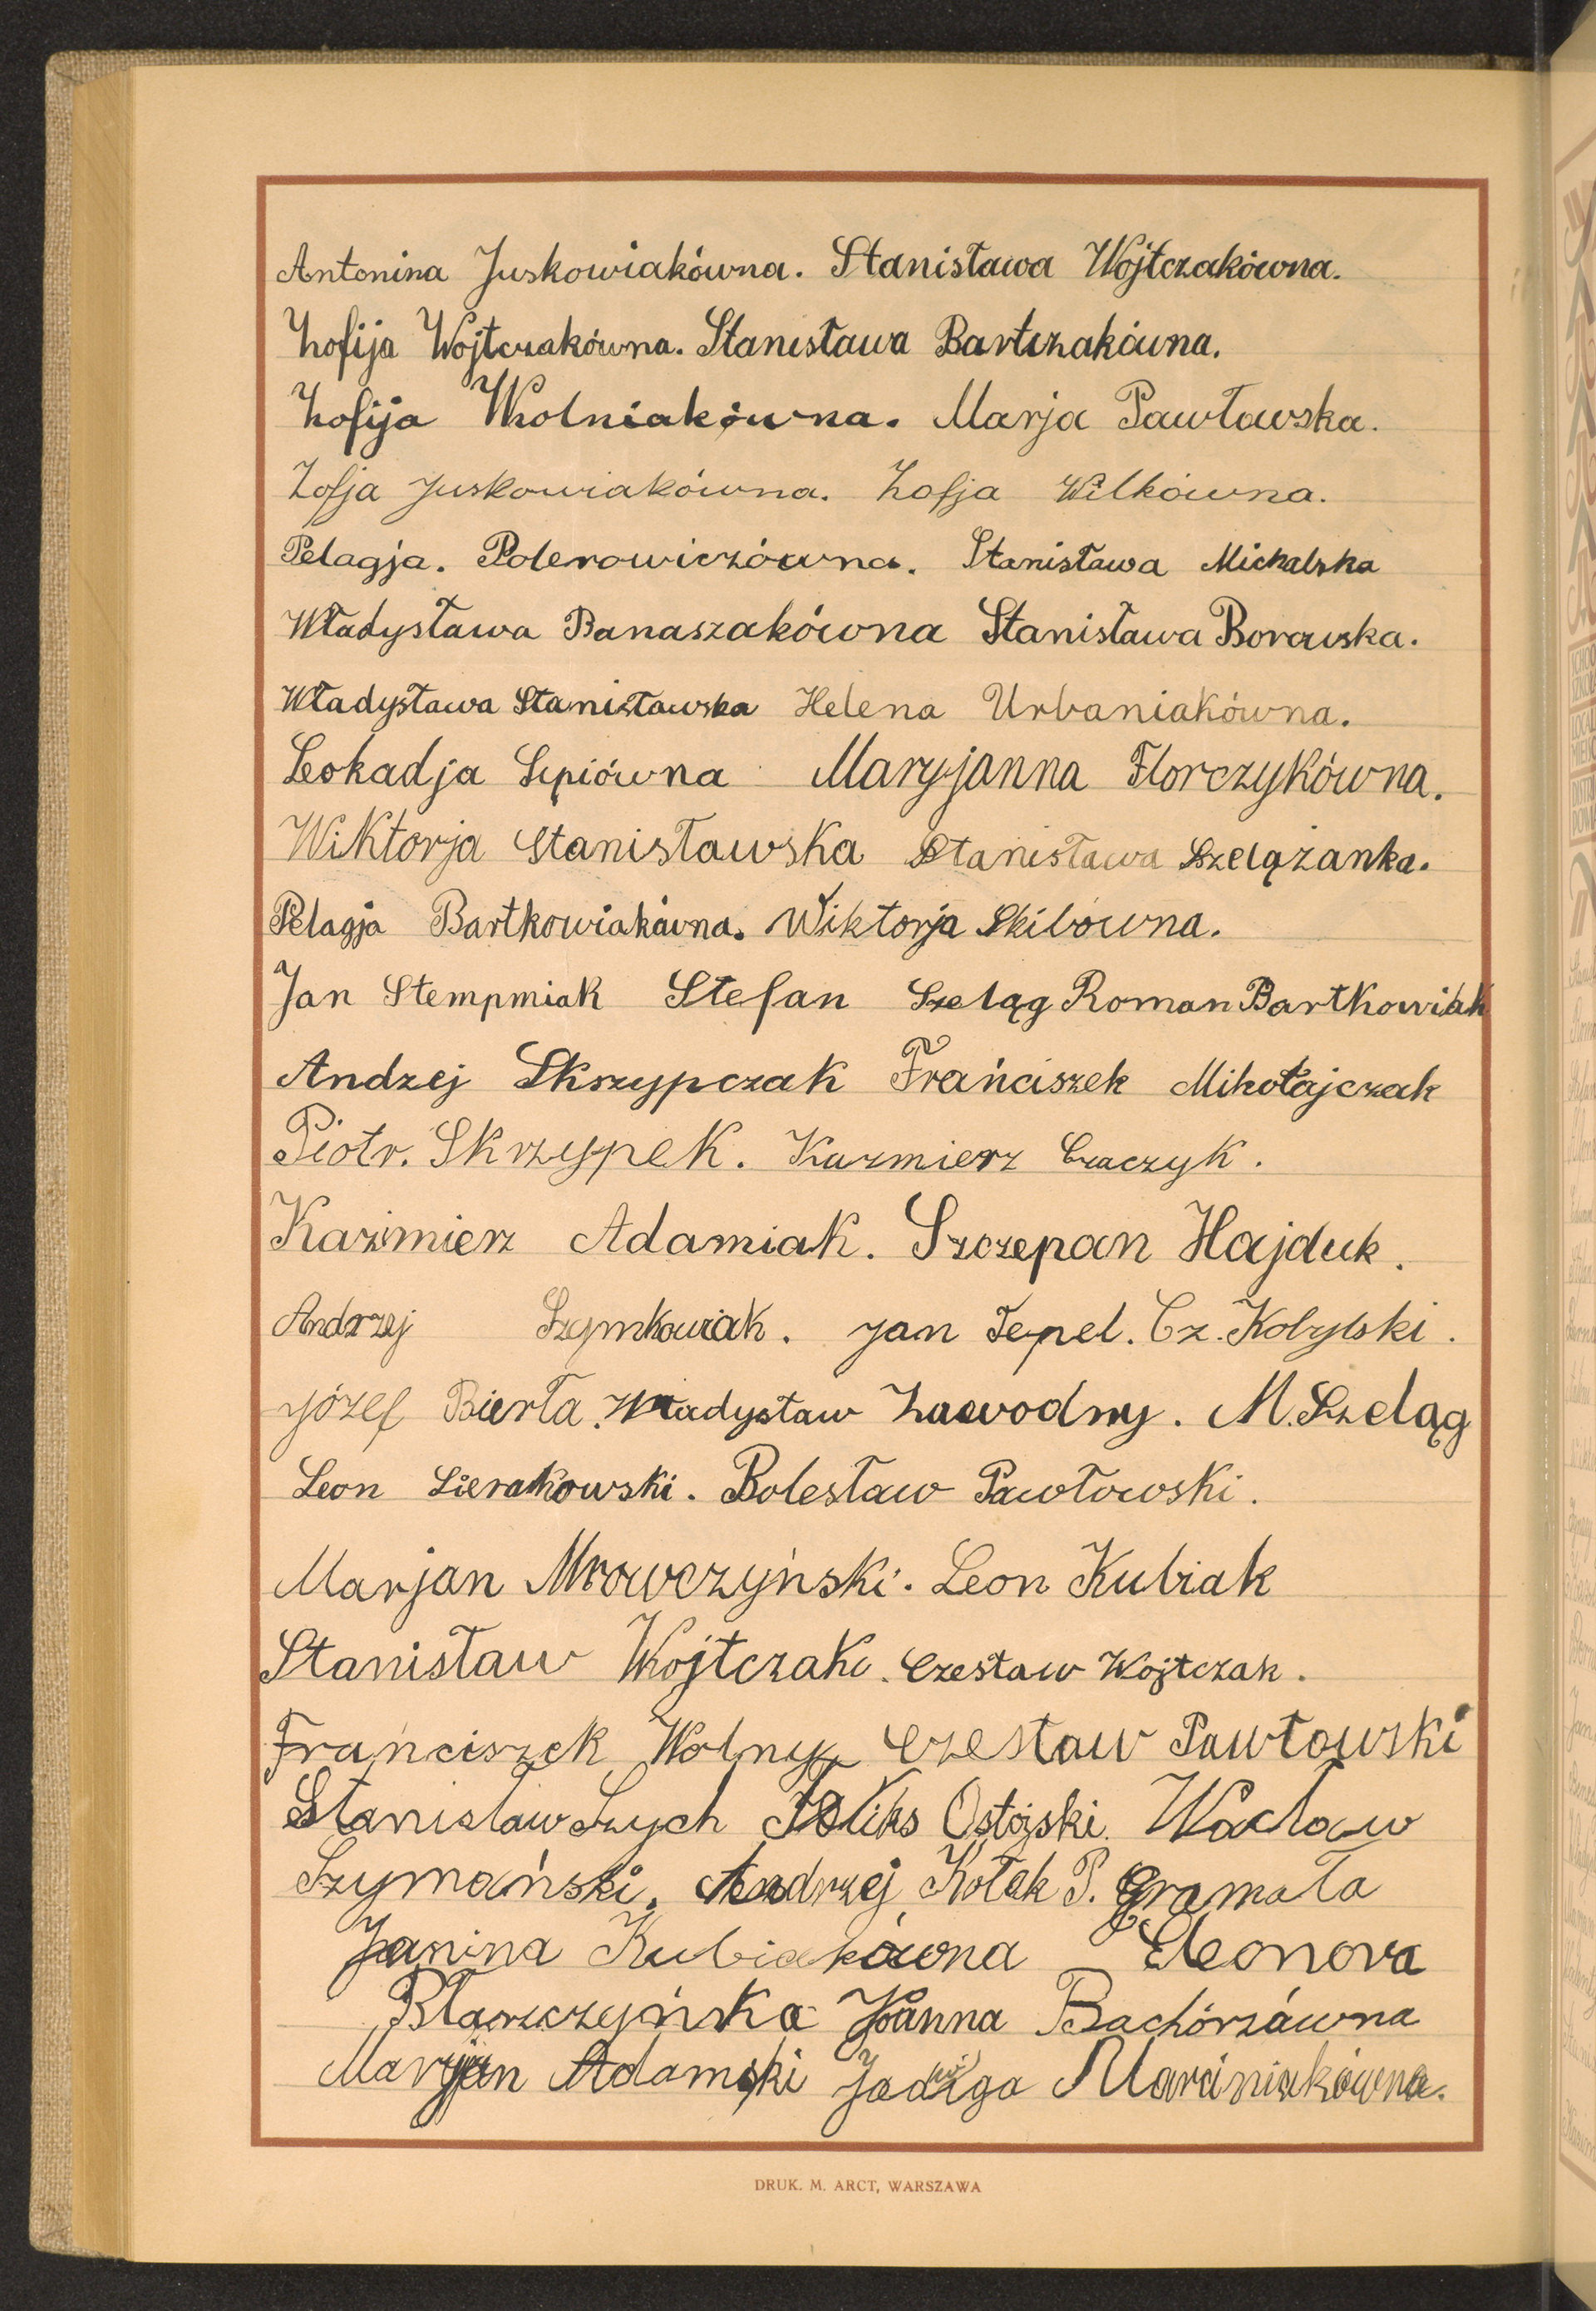 Antonina Juskowiakówna. Stanisława Wojtczakówna.
Zofija Wojtczakówna. Stanisława Bartczakówna.
Zofija Wolniakówna. Marja Pawławska.
Zofja Juskowiakówna. Zofja Wilkówna.
Pelagja. Polerowiczówna. Stanisława Michalska
Władysława Banaszakówna Stanisława Borowska.
Władysława Stanisławska Helena Urbaniakówna.
Leokadja Sępiówna Maryjanna Florczykówna.
Wiktorja Stanisławska Stanisława Szelążanka.
Pelagja Bartkowiakówna. Wiktorja Skibówna.
Jan Stempmiak Stefan Szeląg Roman Bartkowiak
Andzej Skszypczak Frańciszek Mikołajczak
Piotr. Skrzypek. Kazmierz Czaczyk.
Kaźmierz Adamiak. Szczepan Hajduk.
Andrzej Szymkowiak. Jan Tepel. Cz. Kobylski.
Józef Bierła. Władysław Zawodny. M. Szeląg
Leon Sierakowski. Bolesław Pawłowski.
Marjan Mrowczyński. Leon Kubiak
Stanisław Wojtczak. Czesław Wojtczak.
Frańciszek Wolny Czesław Pawłowski
Stanisław Szych Feliks Ostojski. Wacław
Szymański. Andrzej Kołek P. Gramała
Janina Kubiakówna Eleonora
Błaszczyńska Joanna Bachórzówna
Marjan Adamski Jadwiga Marciniakówna.
DRUK. M. ARCT, WARSZAWA